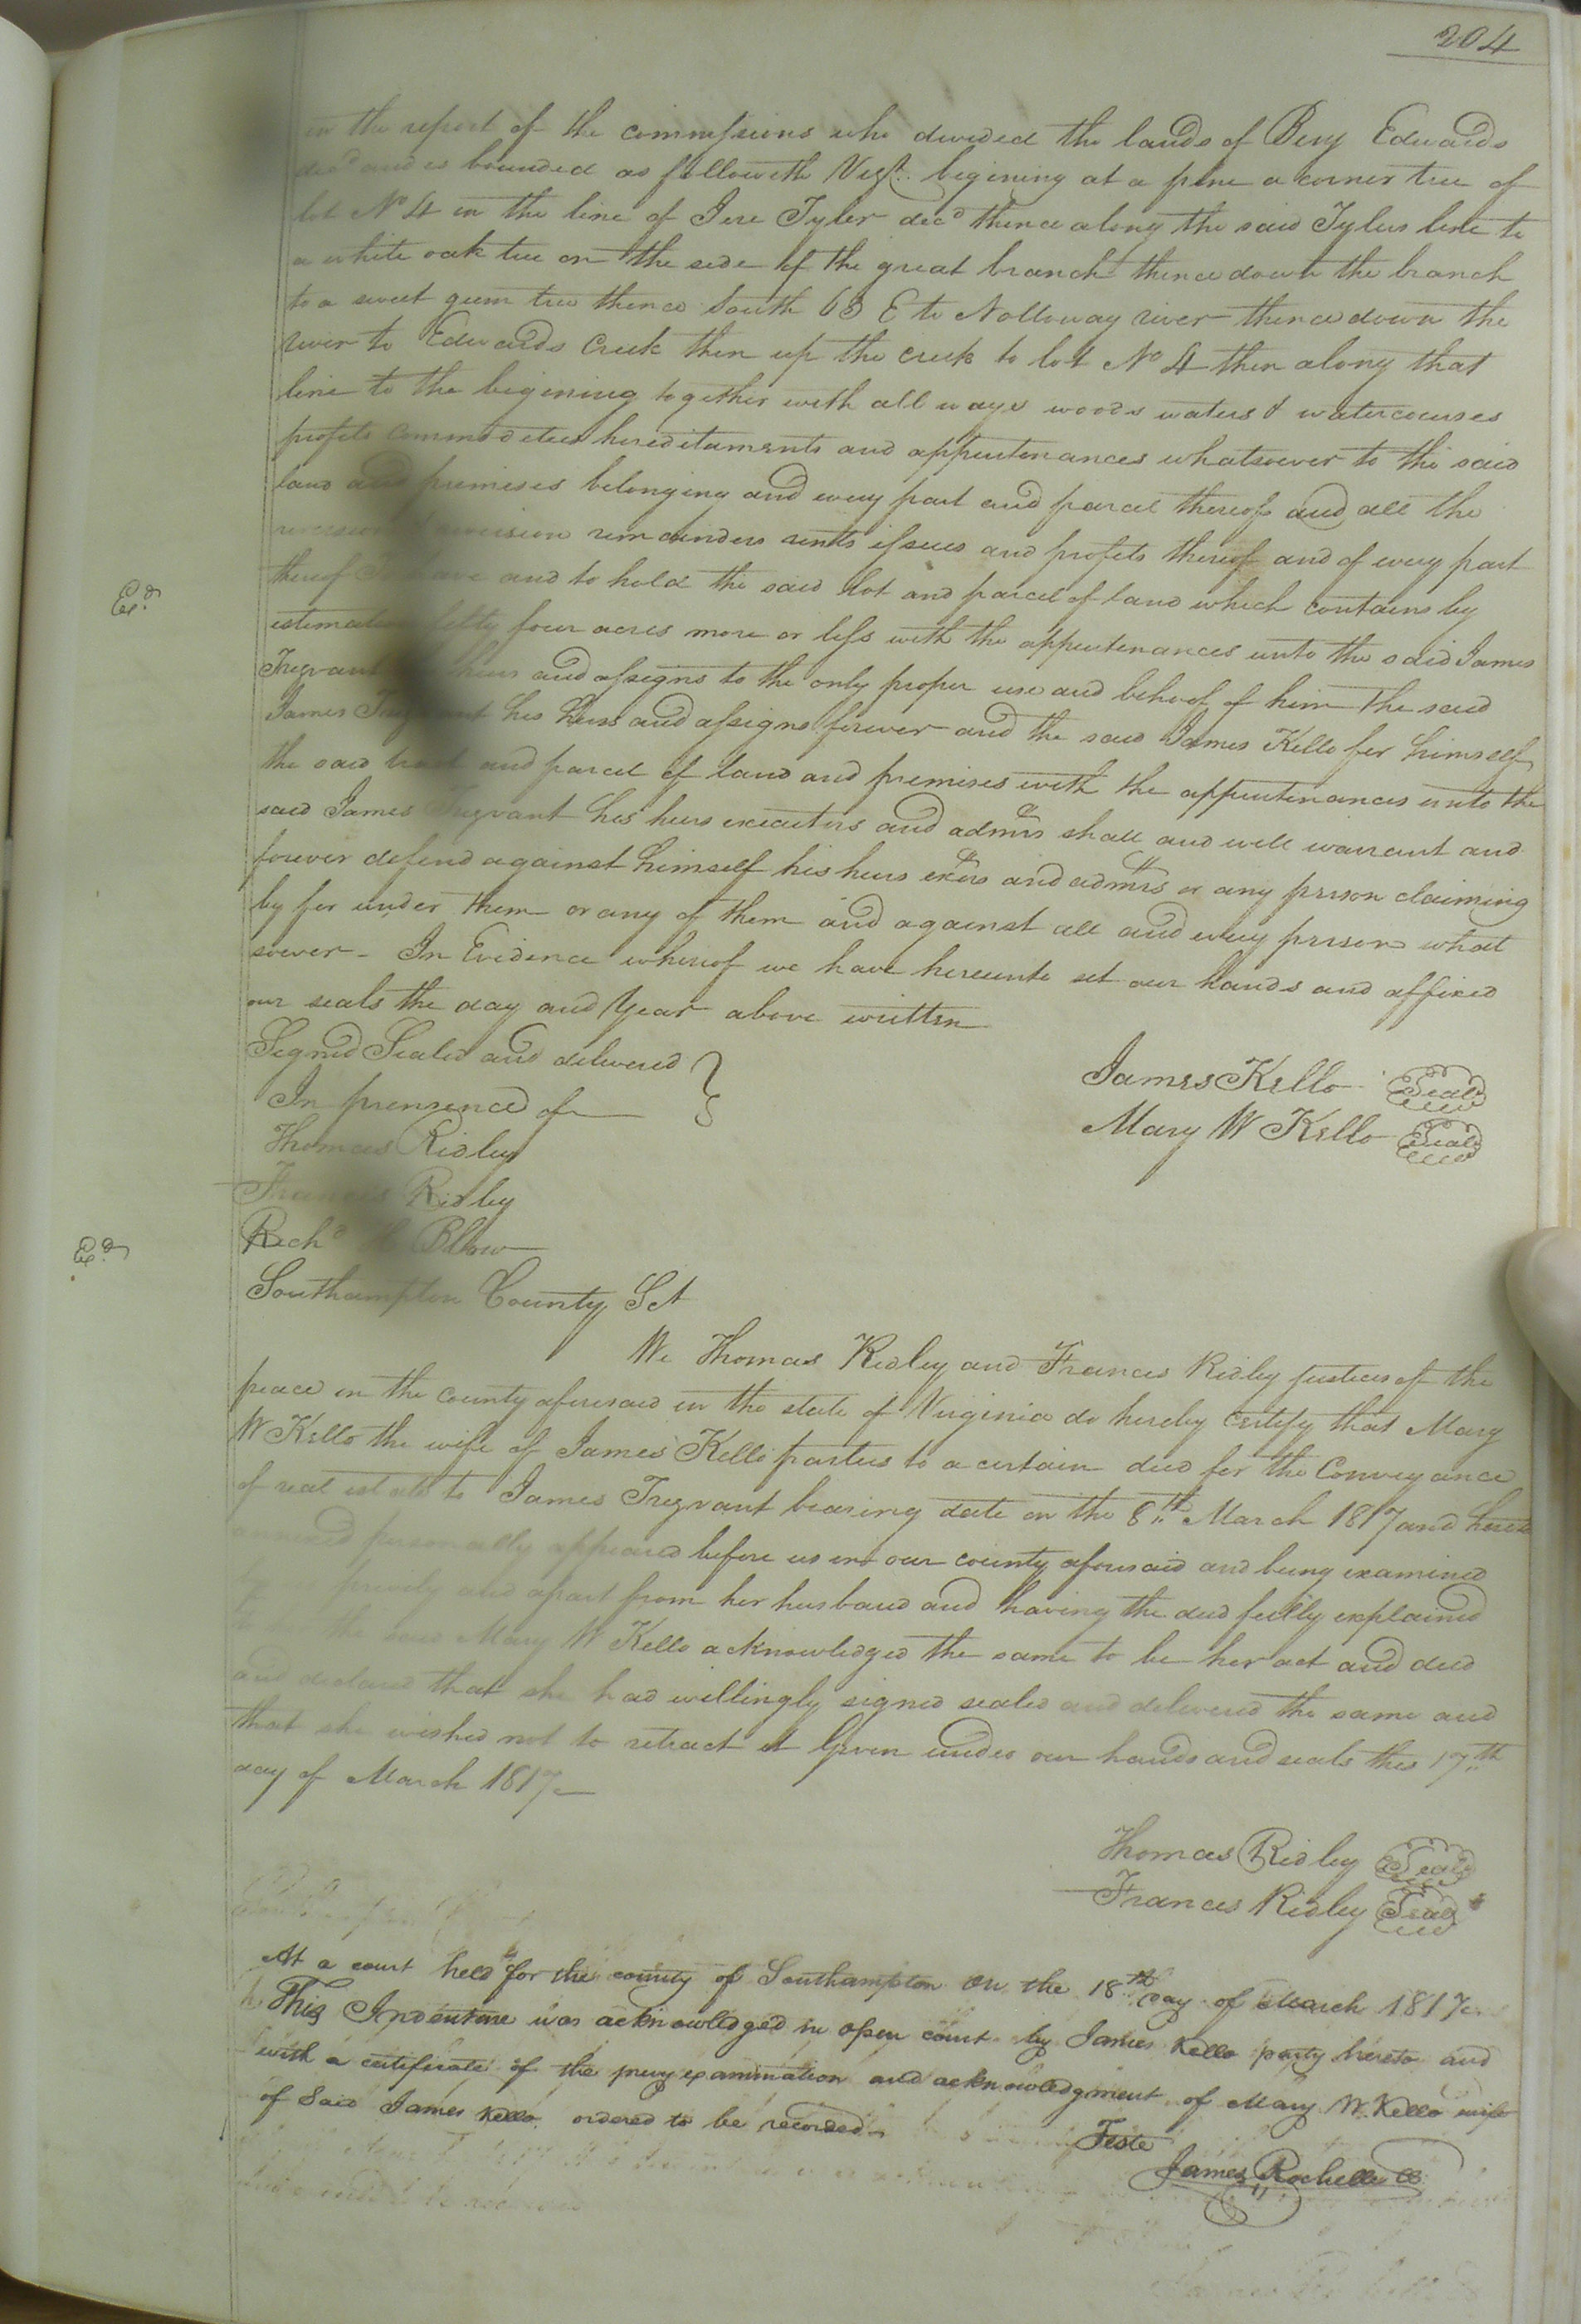 204
in the report of the commissions who devided the lands of Benj Edwards
decd and is bounded as followeth Vizt. begining at a pine a corner tree of
lot No 4 in the line of Jere Tyler decd thence along the said Tylers line to
a white oak tree on the side of the great branch thence down the branch
to a sweet gum tree thence South 63 E to Nottoway river thence down the
river to Edwards Creek then up the creek to lot No 4 then along that
line to the begining together with all ways woods waters & watercourses
profits commodities hereditaments and appurtenances whatsoever to the said
land and premises belonging and every part and parcel thereof and all the
reversion remainders rents issues and profits thereof and of every part
thereof To have and to hold the said lot and parcel of land which contains by
estimation fifty four acres more or less with the appurtenances unto the said James
Tregvant heirs and assigns to the only proper use and behoof of him the said
James Tregvant his heirs and assigns forever and the said James Kello for himself
the said tract and parcel of land and premises with the appurtenances unto the
said James Tregvant his heirs executors and admrs shall and will warrant and
forever defend against himself his heirs exors and admrs or any person claiming
by for under them or any of them and against all and every person what
soever - In Evidence whereof we have hereunto set our hands and affixed
our seals the day and Year above written
Signed Sealed and delivered
In prensenced of
James Kello Seal
Mary W Kello Seal
Thomas Ridley
Frances Ridley
Richd H Blow
Exd
Exd
Southampton County Sct
We Thomas Ridley and Frances Ridley justices of the
peace in the county aforesaid in the state of Virginia do hereby certify that Mary
W Kello the wife of James Kello parties to a certain deed for the Conveyance
of real estate to James Tregvant bearing date on the 8th March 1817 and hereto
annexed personally appeared before us in our county aforesaid and being examined
privily and apart from her husband and having the deed fully explained
the said Mary W Kello acknowledged the same to be her act and deed
and declared that she had willingly signed sealed and delivered the same and
that she wished not to retract it Given under our hands and seals this 17th
day of March 1817
Thomas Ridley Seal
Frances Ridley Seal
At a court held for the county of Southampton on the 18th day of March 1817
This Indenture was acknowledged in open court by James Kello party hereto and
with a certificate of the privy examination and acknowledgment of Mary W. Kello wife
of Said James Kello ordered to be recorded
Teste
James Rochelle CC